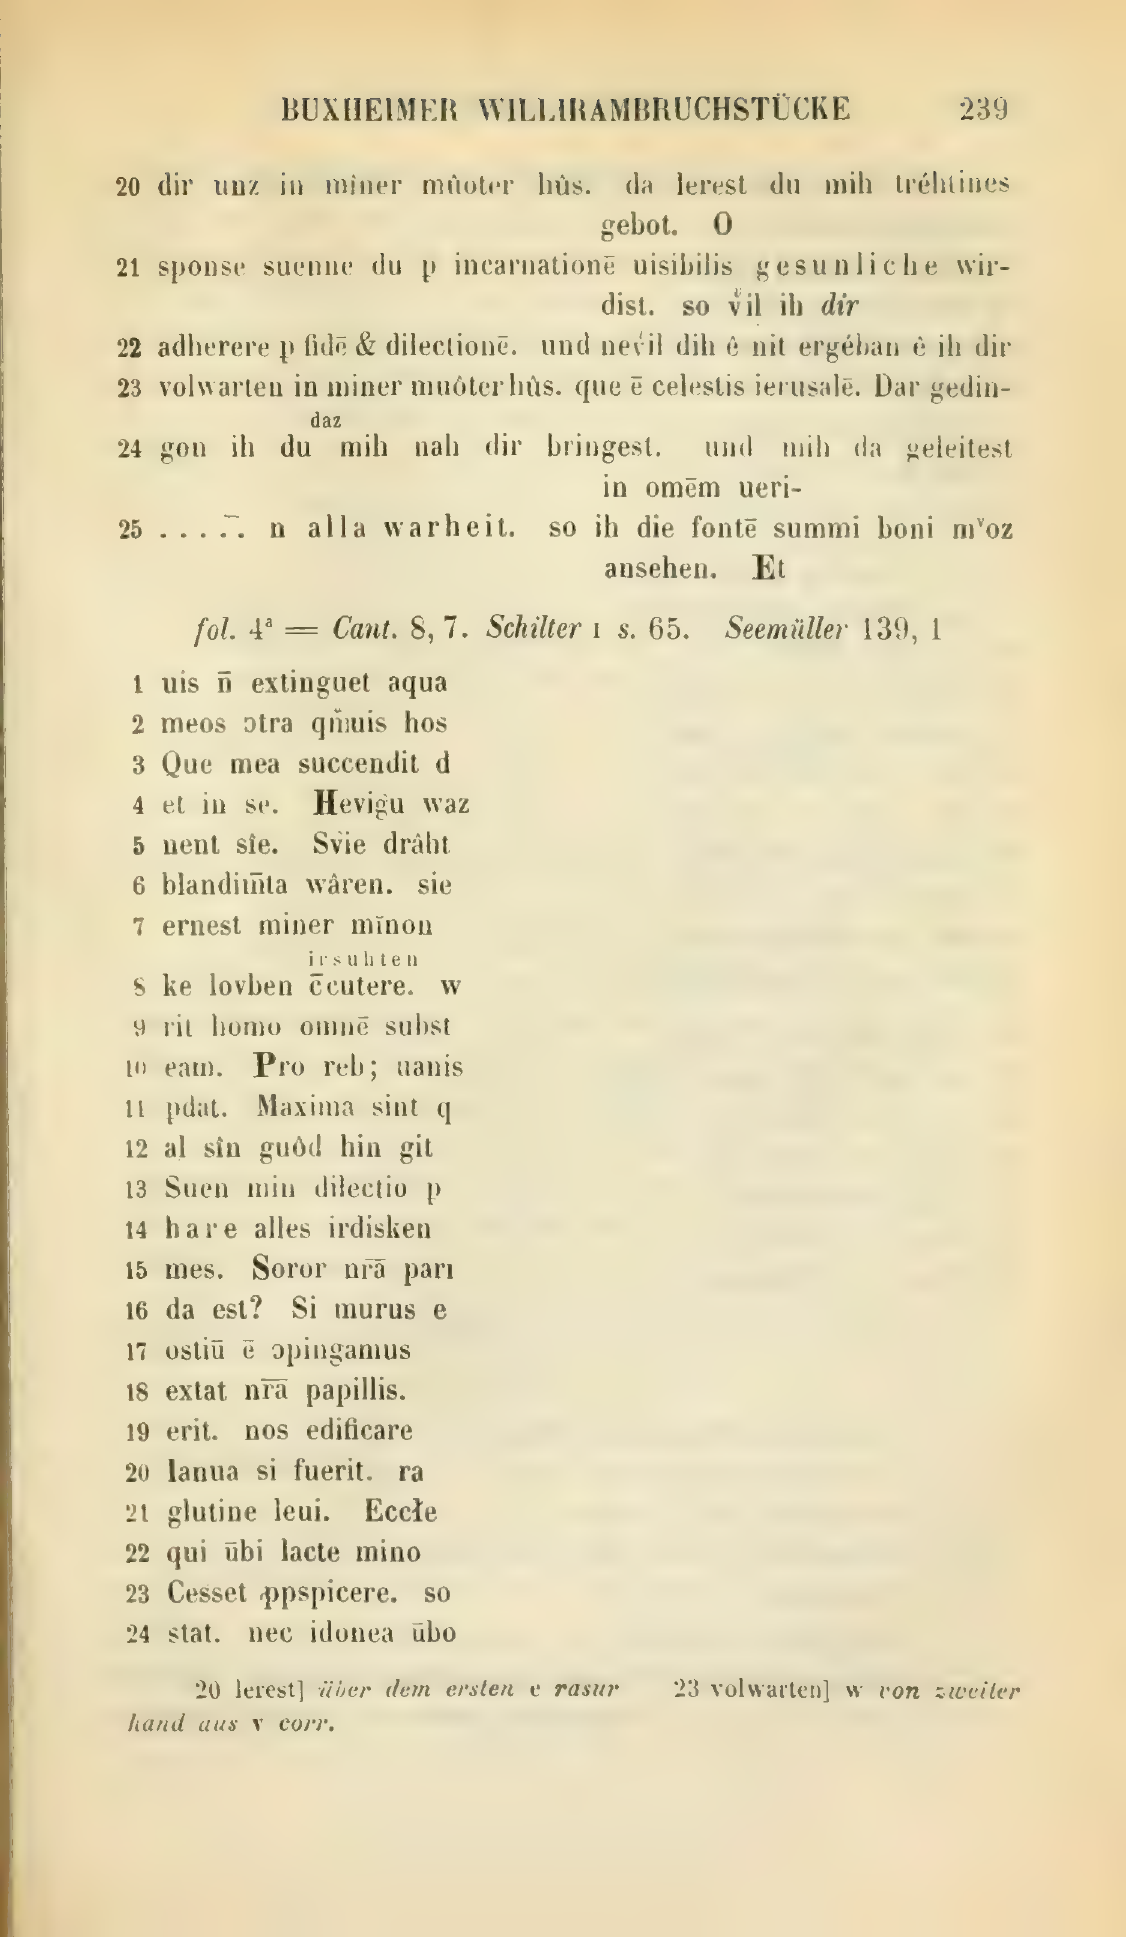 BUXHEIMER WILLIRAMBRUCHSTÜCKE 239
20 dir unz in mîner mûoter hûs. da lerest du mih tréhtines
gebot. O
21 sponse suenne du p incarnationē uisibilis gesunliche wir-
dist. so vͥil ih dir
22 adherere p fidē & dilectionē. und nevͥil dih ê nit ergéban ê ih dir
23 volwarten in miner muôter hûs. que ē celestis ierusalē. Dar gedin-
daz
24 gon ih du mih nah dir bringest. und mih da geleitest
in omēm ueri-
25 ..... n alla warheit. so ih die fontē summi boni mᵛoz
ansehen. Et
fol. 4ª = Cant. 8, 7. Schilter I s. 65. Seemüller 139, 1
1 uis n̄ extinguet aqua
2 meos ɔtra qm̄uis hos
3 Que mea succendit d
4 et in se. Hevigu waz
5 nent sîe. Svie drâht
6 blandim̄ta wâren. sie
7 ernest miner mīnon
irsuhten
8 ke lovben c̄cutere. w
9 rit homo omnē subst
10 eam. Pro reb; uanis
11 pdat. Maxima sint q
12 al sîn guôd hin git
13 Suen min dilectio p
14 hare alles irdisken
15 mes. Soror nr̄ā parı
16 da est? Si murus e
17 ostiū ē ɔpingamus
18 extat nr̄ā papillis.
19 erit. nos edificare
20 Ianua si fuerit. ra
21 glutine leui. Eccłe
22 qui ūbi lacte mino
23 Cesset ꝓpspicere. so
24 stat. nec idonea ūbo
20 lerest] über dem ersten e rasur 23 volwarten] w von zweiter
hand aus v corr.